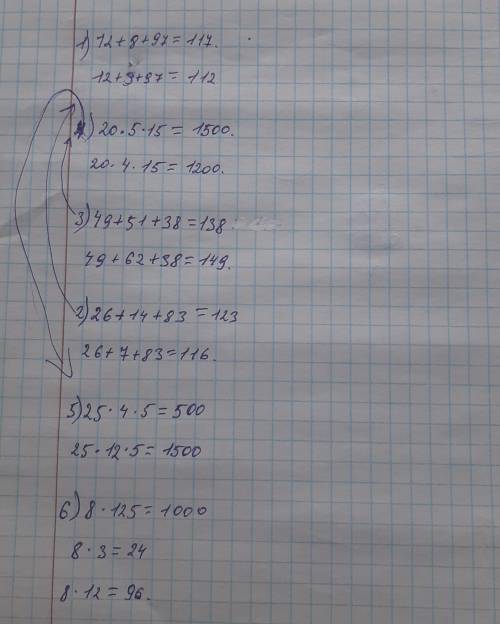 1) 12+8+97=117.
12+3+97=112
4) 20·5·15=1500.
20·4·15=1200.
3) 49+51+38=138.
49+62+38=149.
2) 26+14+83=123
26+7+83=116.
5) 25·4·5=500
25·12·5=1500
6) 8·125=1000
8·3=24
8·12=96.